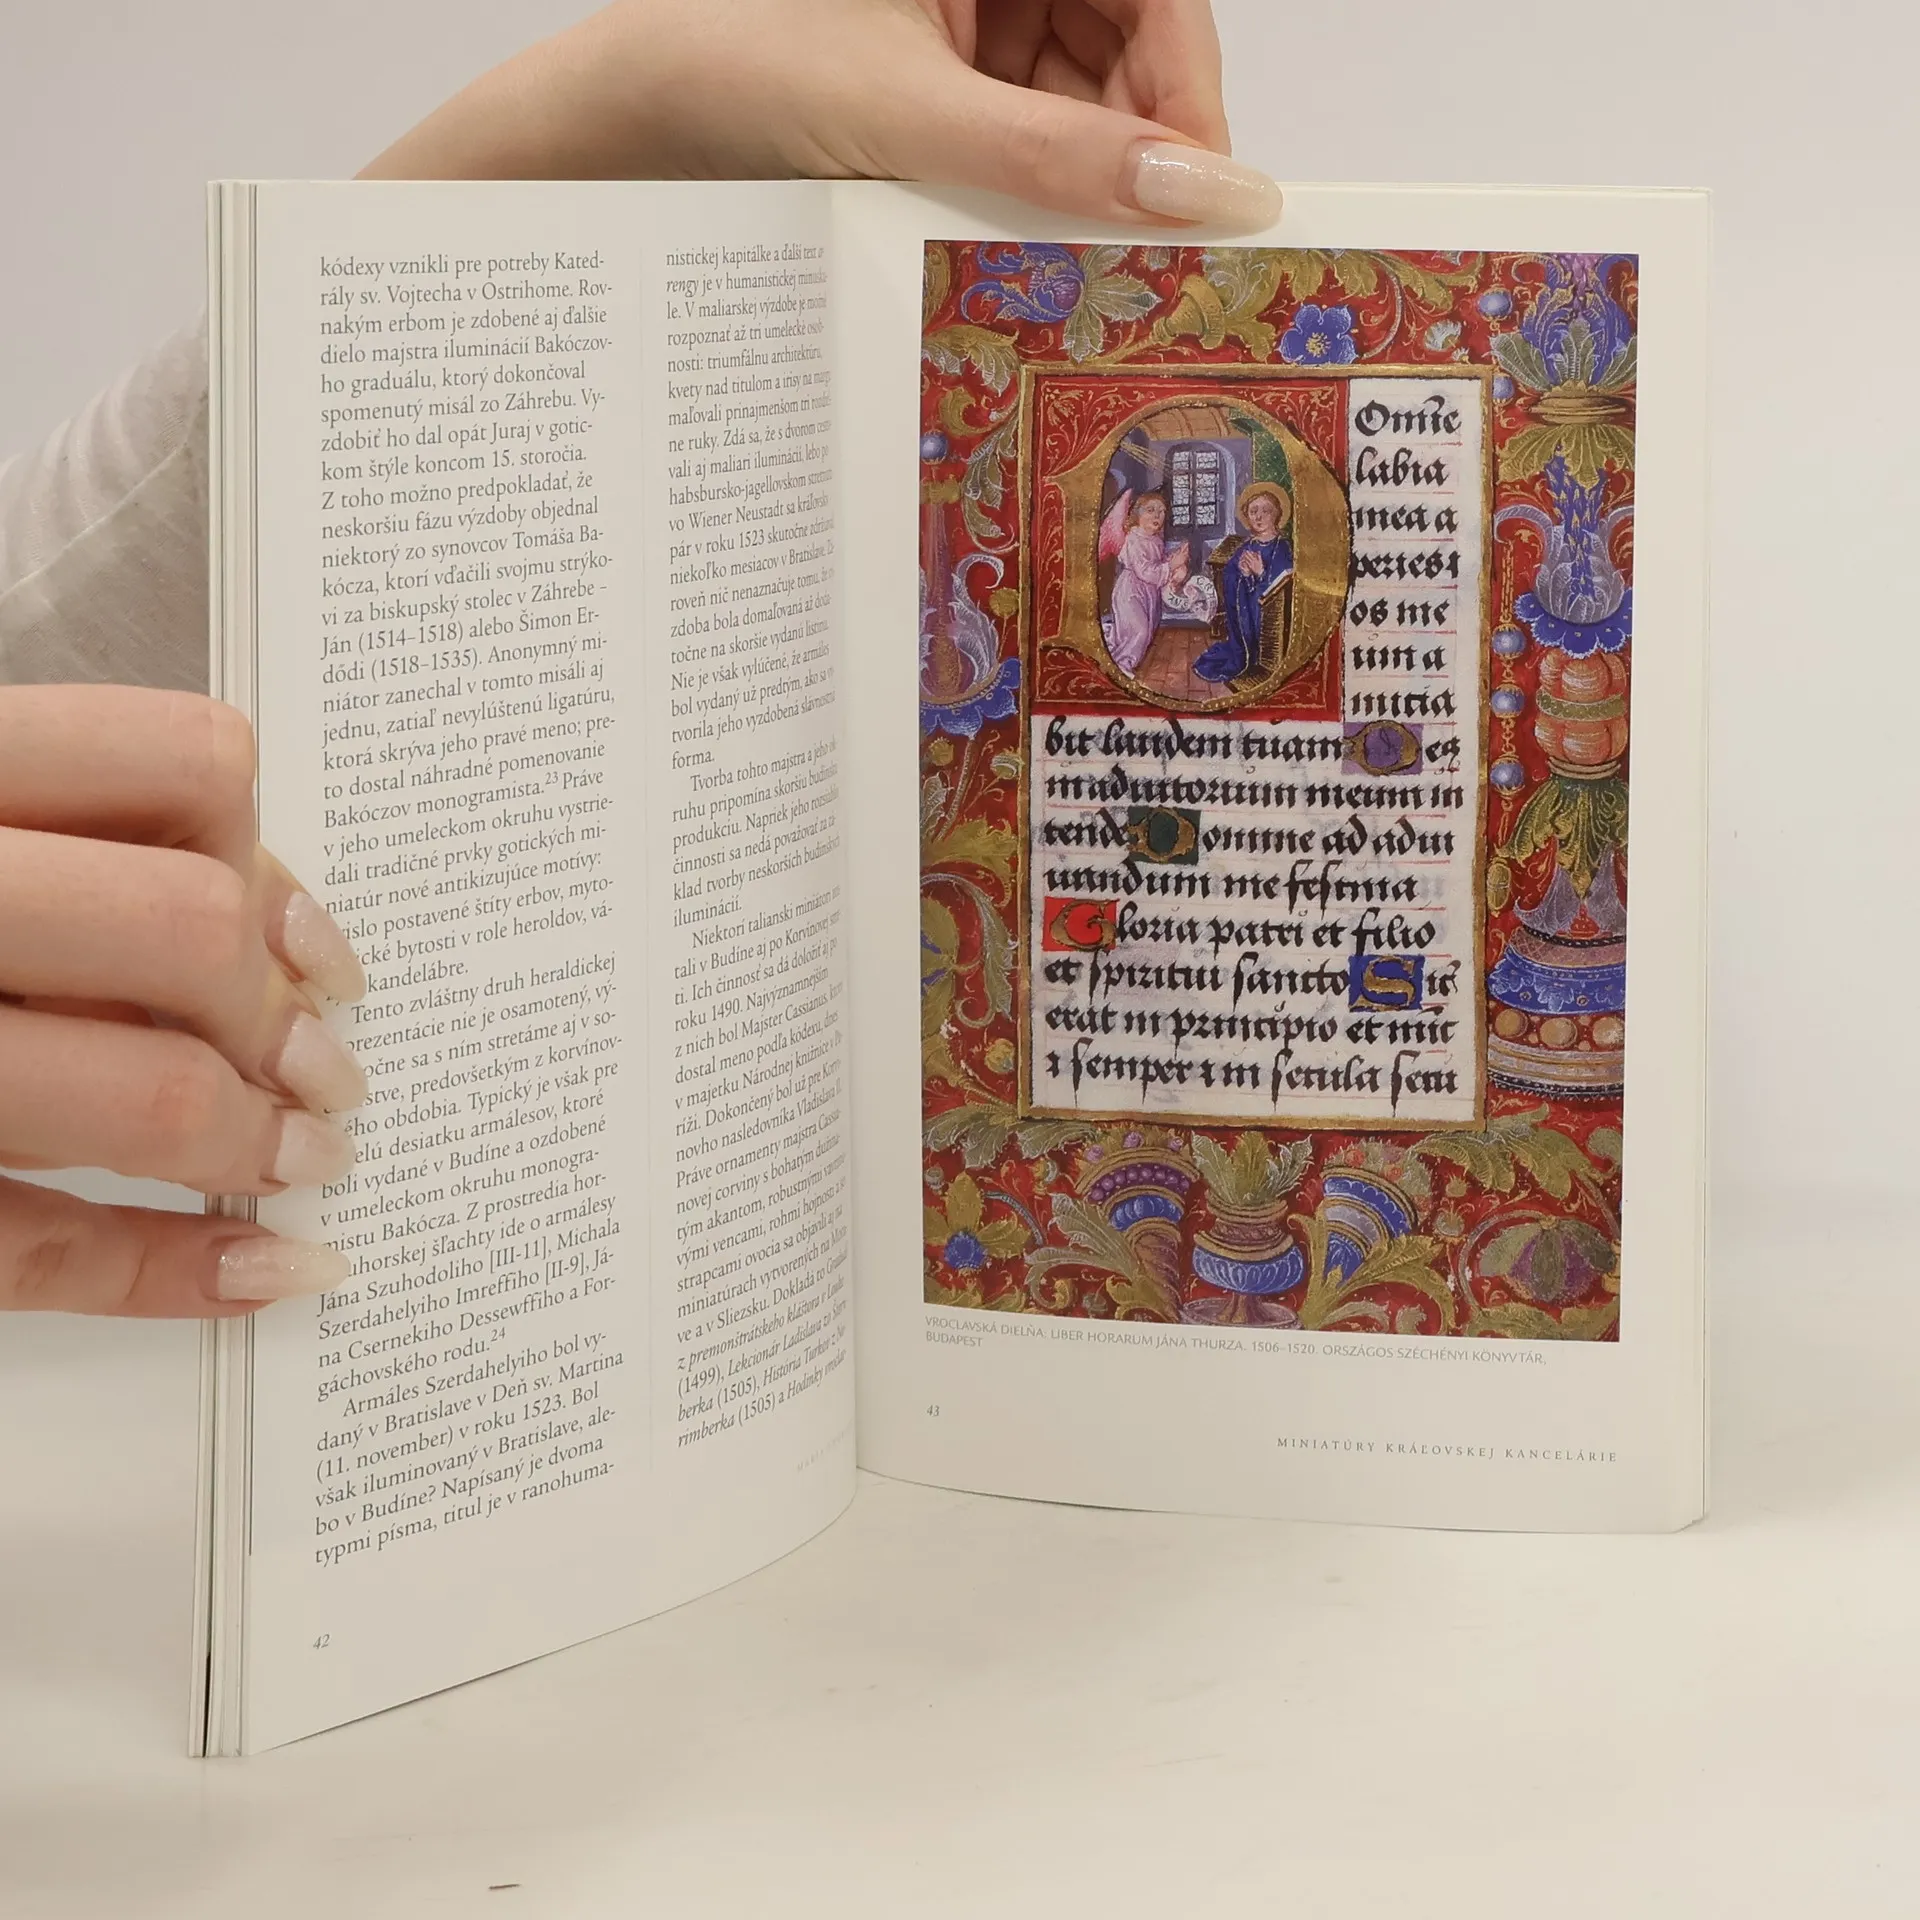 kódexy vznikli pre potreby Kated-
rály sv. Vojtecha v Ostrihome. Rov-
nakým erbom je zdobené aj ďalšie
dielo majstra iluminácií Bakóczov-
ho graduálu, ktorý dokončoval
spomenutý misál zo Záhrebu. Vy-
zdobiť ho dal opát Juraj v gotic-
kom štýle koncom 15. storočia.
Z toho možno predpokladať, že
neskoršiu fázu výzdoby objednal
niektorý zo synovcov Tomáša Ba-
kócza, ktorí vďačili svojmu strýko-
vi za biskupský stolec v Záhrebe –
Ján (1514–1518) alebo Šimon Er-
dődi (1518–1535). Anonymný mi-
niátor zanechal v tomto misáli aj
jednu, zatiaľ nevylúštenú ligatúru,
ktorá skrýva jeho pravé meno; pre-
to dostal náhradné pomenovanie
Bakóczov monogramista.23 Práve
v jeho umeleckom okruhu vystrie-
dali tradičné prvky gotických mi-
niatúr nové antikizujúce motívy:
postavené štíty erbov, myto-
bytosti v role heroldov, vá-
kandelábre.
Tento zvláštny druh heraldickej
nie je osamotený, vý-
sa s ním stretáme aj v so-
predovšetkým z korvínov-
obdobia. Typický je však pre
desiatku armálesov, ktoré
boli vydané v Budíne a ozdobené
v umeleckom okruhu monogra-
mistu Bakócza. Z prostredia hor-
šľachty ide o armálesy
Jána Szuhodoliho [III-11], Michala
Szerdahelyiho Imreffiho [II-9], Já-
na Csernekiho Dessewffiho a For-
gáchovského rodu.24
Armáles Szerdahelyiho bol vy-
daný v Bratislave v Deň sv. Martina
(11. november) v roku 1523. Bol
však iluminovaný v Bratislave, ale-
bo v Budíne? Napísaný je dvoma
typmi písma, titul je v ranohuma-
42
nistickej kapitálke a ďalší text
rengy je v humanistickej
le. V maliarskej výzdobe je
rozpoznať až tri umelecké osob-
nosti: triumfálnu architektúru,
kvety nad titulom a irisy na
maľovali prinajmenšom tri
ne ruky. Zdá sa, že s dvorom
vali aj maliari iluminácií, lebo po
habsbursko-jagellovskom
vo Wiener Neustadt sa kráľovský
pár v roku 1523 skutočne
niekoľko mesiacov v Bratislave.
roveň nič nenaznačuje tomu, že
zdoba bola domaľovaná až
točne na skoršie vydanú listinu.
Nie je však vylúčené, že armáles
bol vydaný už predtým, ako sa
tvorila jeho vyzdobená slávnostná
forma.
Tvorba tohto majstra a jeho
ruhu pripomína skoršiu budínsku
produkciu. Napriek jeho rozsiahlej
činnosti sa nedá považovať za
klad tvorby neskorších budínskych
iluminácií.
Niektorí talianski miniátori
tali v Budíne aj po Korvínovej
ti. Ich činnosť sa dá doložiť aj po
roku 1490. Najvýznamnejším
z nich bol Majster Cassianus,
dostal meno podľa kódexu, dnes
v majetku Národnej knižnice v Pa-
ríži. Dokončený bol už pre
novho nasledovníka Vladislava II.
Práve ornamenty majstra Cassia-
novej corviny s bohatým
tým akantom, robustnými
vými vencami, rohmi hojnosti a
strapcami ovocia sa objavili aj na
miniatúrach vytvorených na Mora-
ve a v Sliezsku. Dokladá to Graduál
z premonštrátskeho kláštora v
(1499), Lekcionár Ladislava zo
berka (1505), História Turkov z
rimberka (1505) a Hodinky
Omīe
labia
mea a
peries ⁊
os me
um a
nūcia
bit laudem tuam Deꝰ
in adiutorium meum in
tende Domine ad adiu
uandum me festina
Gloria patri et filio
et spiritui sancto Sic̄
erat in principio et nūc
⁊ semper ⁊ in secula secu
VROCLAVSKÁ DIELŇA: LIBER HORARUM JÁNA THURZA. 1506–1520. ORSZÁGOS SZÉCHÉNYI KÖNYVTÁR,
BUDAPEST
43
MINIATÚRY KRÁĽOVSKEJ KANCELÁRIE